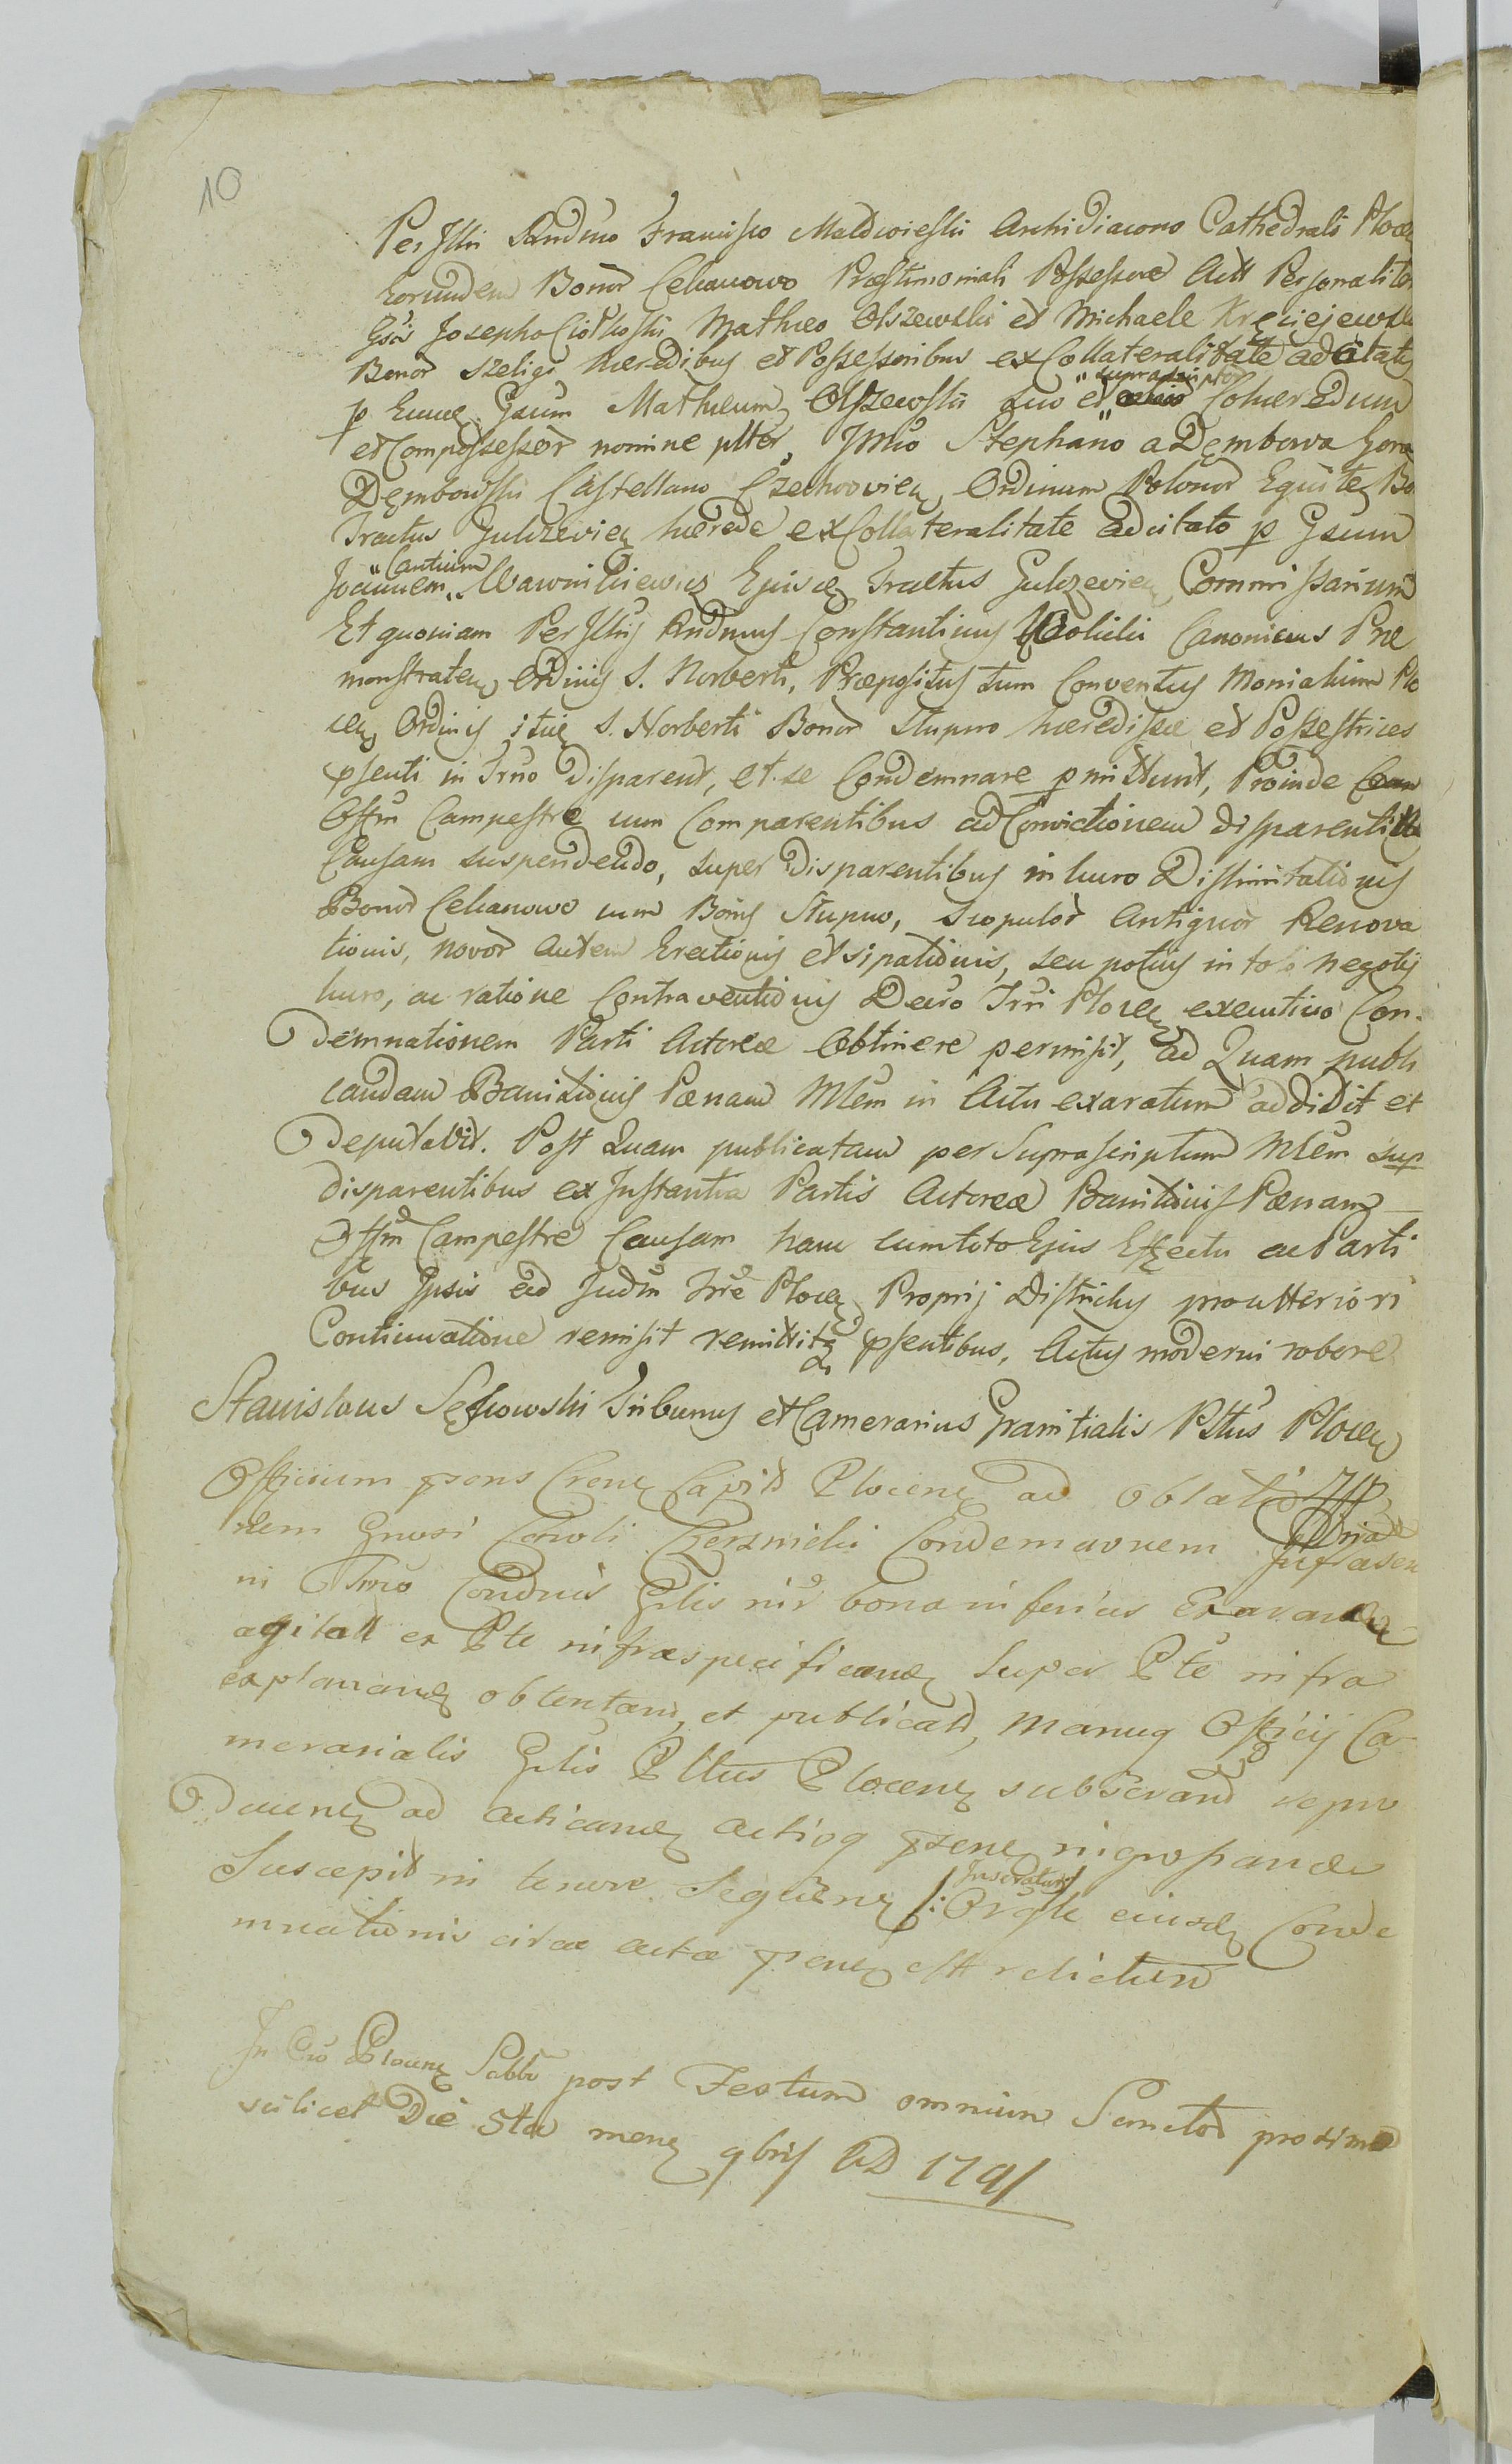 10
Per Illri Rndmo Francisco Maldwieski Archidiacono Cathedrali Plocen
Eorundem Bonor Cekanowo Præstimoniali Possessore Actt Personaliter
Gsis Josepho Ciołkoski Matheo Olszewski et Michaele Kręciejewski
Bonor Szeligi hæredibus et Possessoribus ex Collateralitate adcitatis
p Eunc Gsum Matheum Olszewski suo et suprascriptor Cohæredum
et Compossessor nomine plter, Jllmo Stephano a Dembowa Gora
Dembowski Castellano Czechovien Ordinum Polonor Equite Bo
Tractus Gulczevien hærede ex Collateralitate adcitato p Gsum
Cantium
Joannem Wawrikiewicz Ejusd Tractus Gulczevien Commissarium
Et quoniam Per Illris Rndmus Constantinus Canonicus Præ
monstraten Ordinis S. Norberti, Præpositus tum Conventus Monialium Plo
cen Ordinis itid S. Norberti Bonor Stupno hæredissæ et Possestrices
psenti in Trno disparent, et se Condemnare pmittunt, Proinde
Offm Campestre cum Comparentibus ad Convictionem disparentium
Causam suspendendo, super disparentibus in lucro Dislimitationis
Bonor Cekanowo cum Bonis Stupno, Scopulor Antiquor Renova
tionis, novor autem Erectionis et sipationis, seu potius in toto negotij
lucro, ac ratione Contraventionis Decro Trri Plocen executivo Con-
demnationem Parti Actoreæ Obtinere permisit, ad Quam publi
candam Banitionis Pænam Mlem in Actu exaratum addidit et
deputavit. Post Quam publicatam per Suprascriptum Mlem sup
disparentibus ex Instantia Partis Actoreæ Banitionis Pænam
Offm Campestre Causam hanc cum toto Ejus Effectu ac Parti
bus Ipsis ad Judm Trre Plocen Proprij Districtus pro ulteriori
Continuatione remisit remittitq psentibus, Actus moderni robore
Stanislaus Sękowski Tribunus et Camerarius Granitialis Plttus Plocen
Officium psens Crense Capitt Plocense ad oblatio
nem Gnosi Caroli Czerznicki Condemaonem Infrascri
in Tmo Conduis Grlis nir bona inferius Exaranda
agitatt ex Pte infraspecificand super Pte infra
explanand obtentam, et publicatt, manuq Officij Ca-
merarialis Grlis Plttus Plocens subscrand repro
ducens ad acticand actisq psens ingrossand
Suscepit in tenore Sequens /: Inseratur / Orgle ejusd Conde
mnationis circa acta psens est relictum
In Cro Plocens Sabbo post Festum omnium Sanctor proximo
scilicet Die 5ta mens 9bris AD 1791